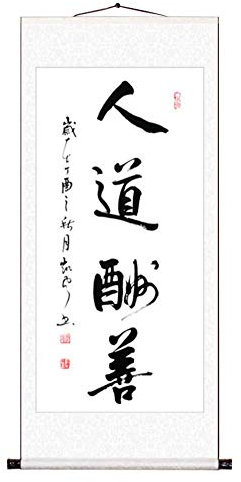 人道酬善
歲在丁酉之秋月 书